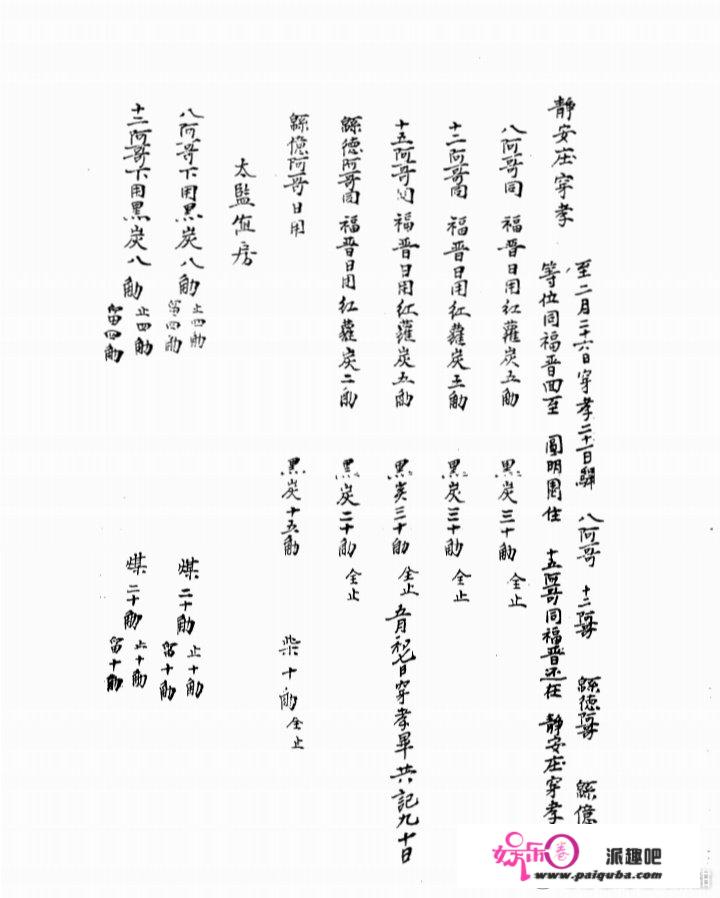 靜安庄穿孝
至二月二十六日穿孝二十一日 八阿哥 十二阿哥 緜德阿哥 緜億
等位同福晋回至 圓明園住 十五阿哥同福晋还在 靜安庄穿孝
八阿哥同 福晋日用紅蘿炭五觔 黑炭三十觔 全止
十二阿哥同 福晋日用紅蘿炭五觔 黑炭三十觔 全止
十五阿哥同 福晋日用紅蘿炭五觔 黑炭三十觔 全止 五月初七日穿孝畢共記九十日
緜德阿哥同 福晋日用紅蘿炭二觔 黑炭二十觔 全止
緜億阿哥日用 黑炭十五觔 柴十觔 全止
太監值房
八阿哥下用黑炭八觔 止四觔 留四觔 煤二十觔 止十觔 留十觔
十二阿哥下用黑炭八觔 止四觔 留四觔 煤二十觔 止十觔 留十觔
娱乐圈 派趣吧
www.paiquba.com